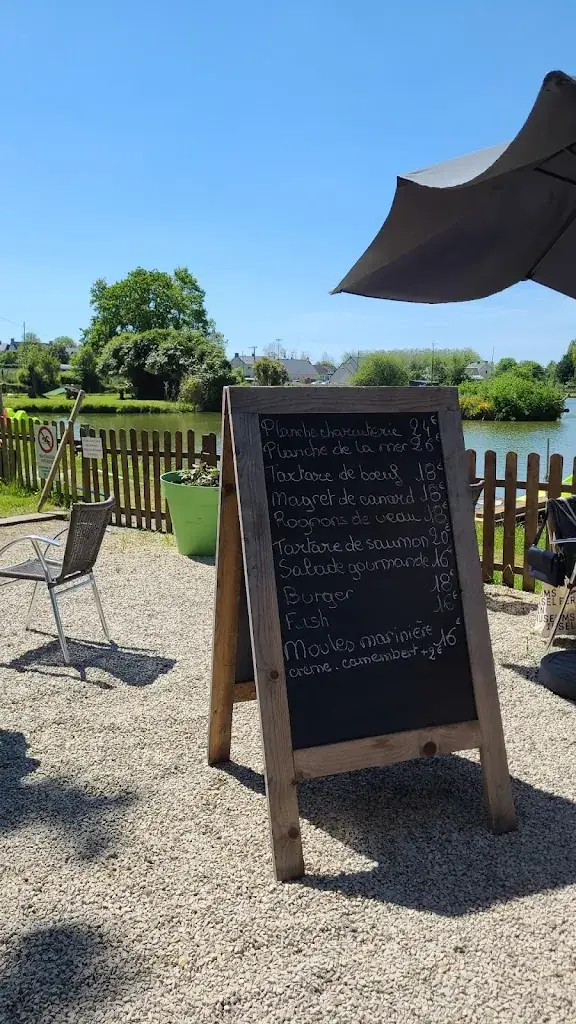 Planche charcuterie 24€
Planche de la mer 26€
Tartare de bœuf 18€
Magret de canard 18€
Rognons de veau 18€
Tartare de saumon 20€
Salade gourmande 16€
Burger 18€
Fish 16€
Moules marinière 16€
crème. camembert +2€